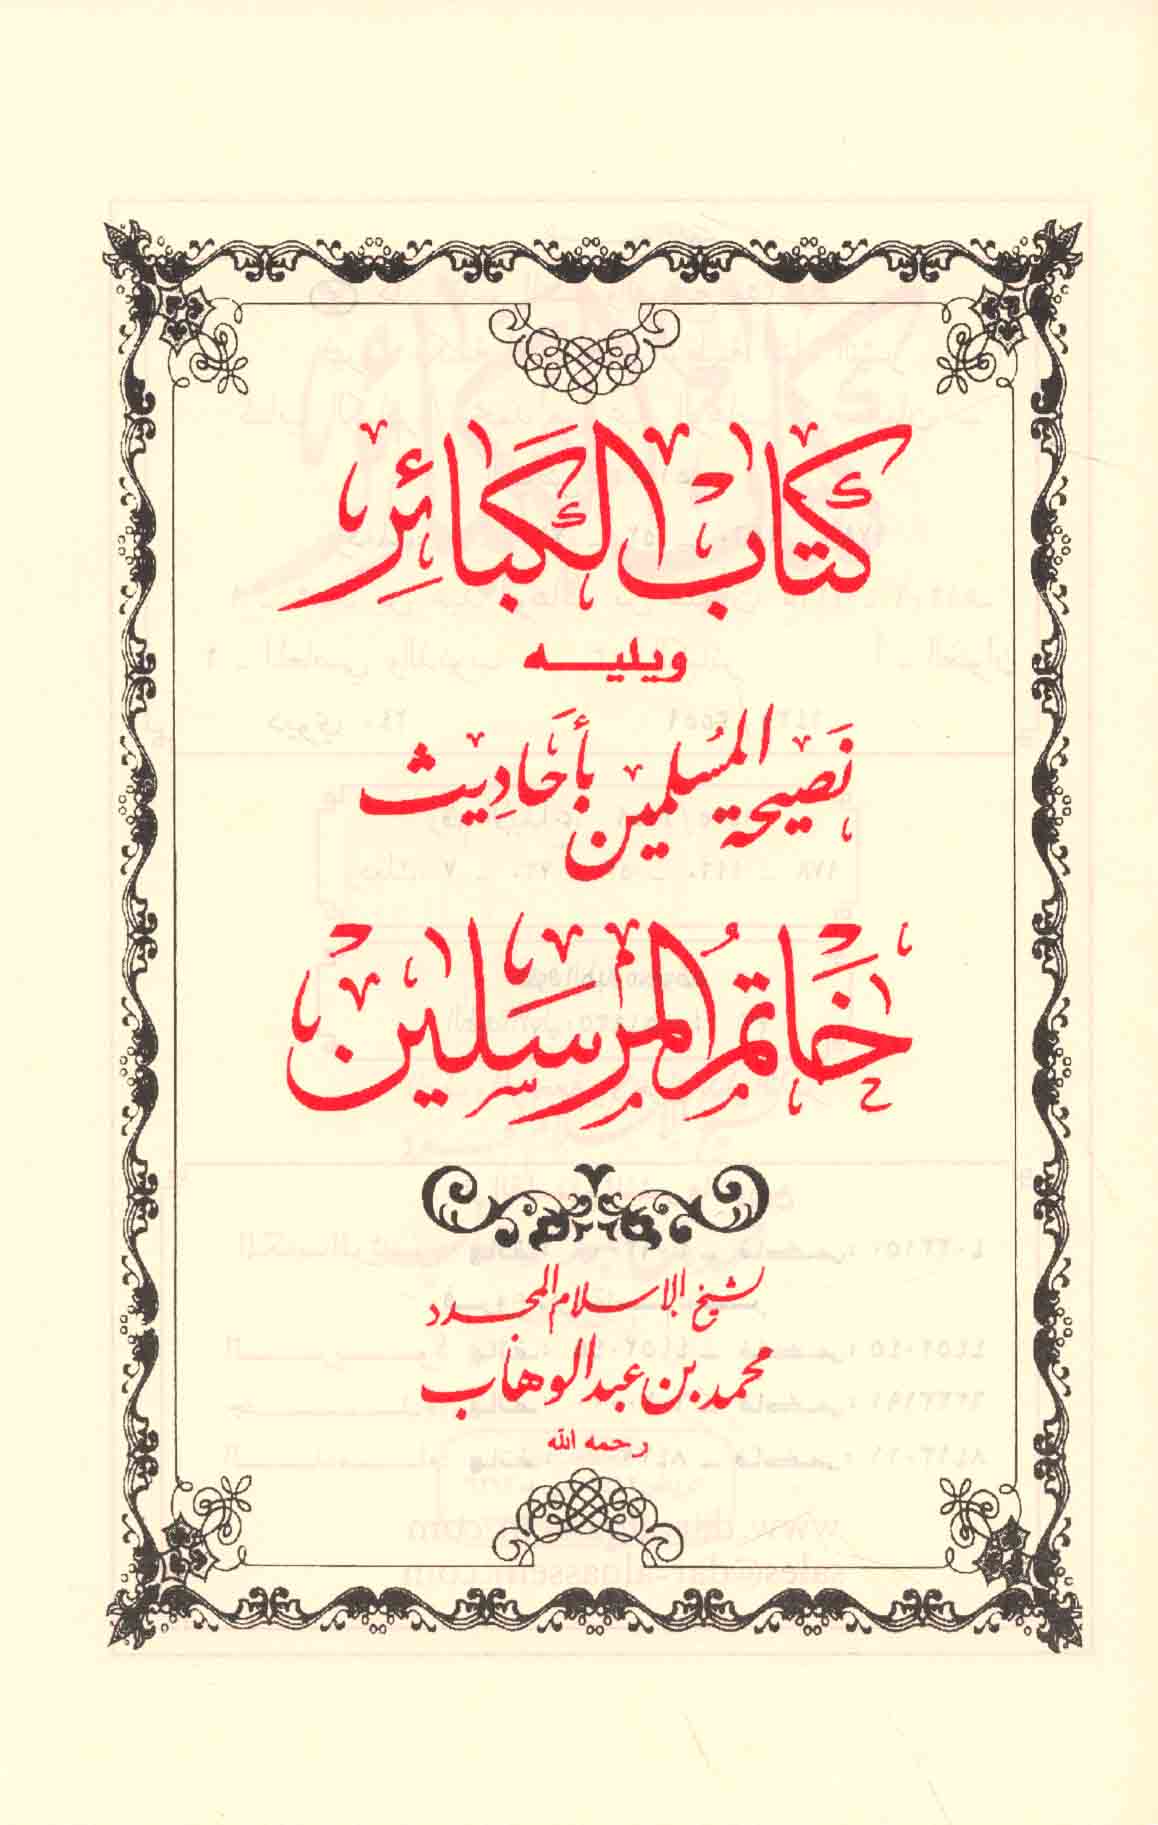 كتاب الكبائر
ويليه
نصيحة المسلمين بأحاديث
خاتم المرسلين
لشيخ الإسلام المجدد
محمد بن عبد الوهاب
رحمه الله